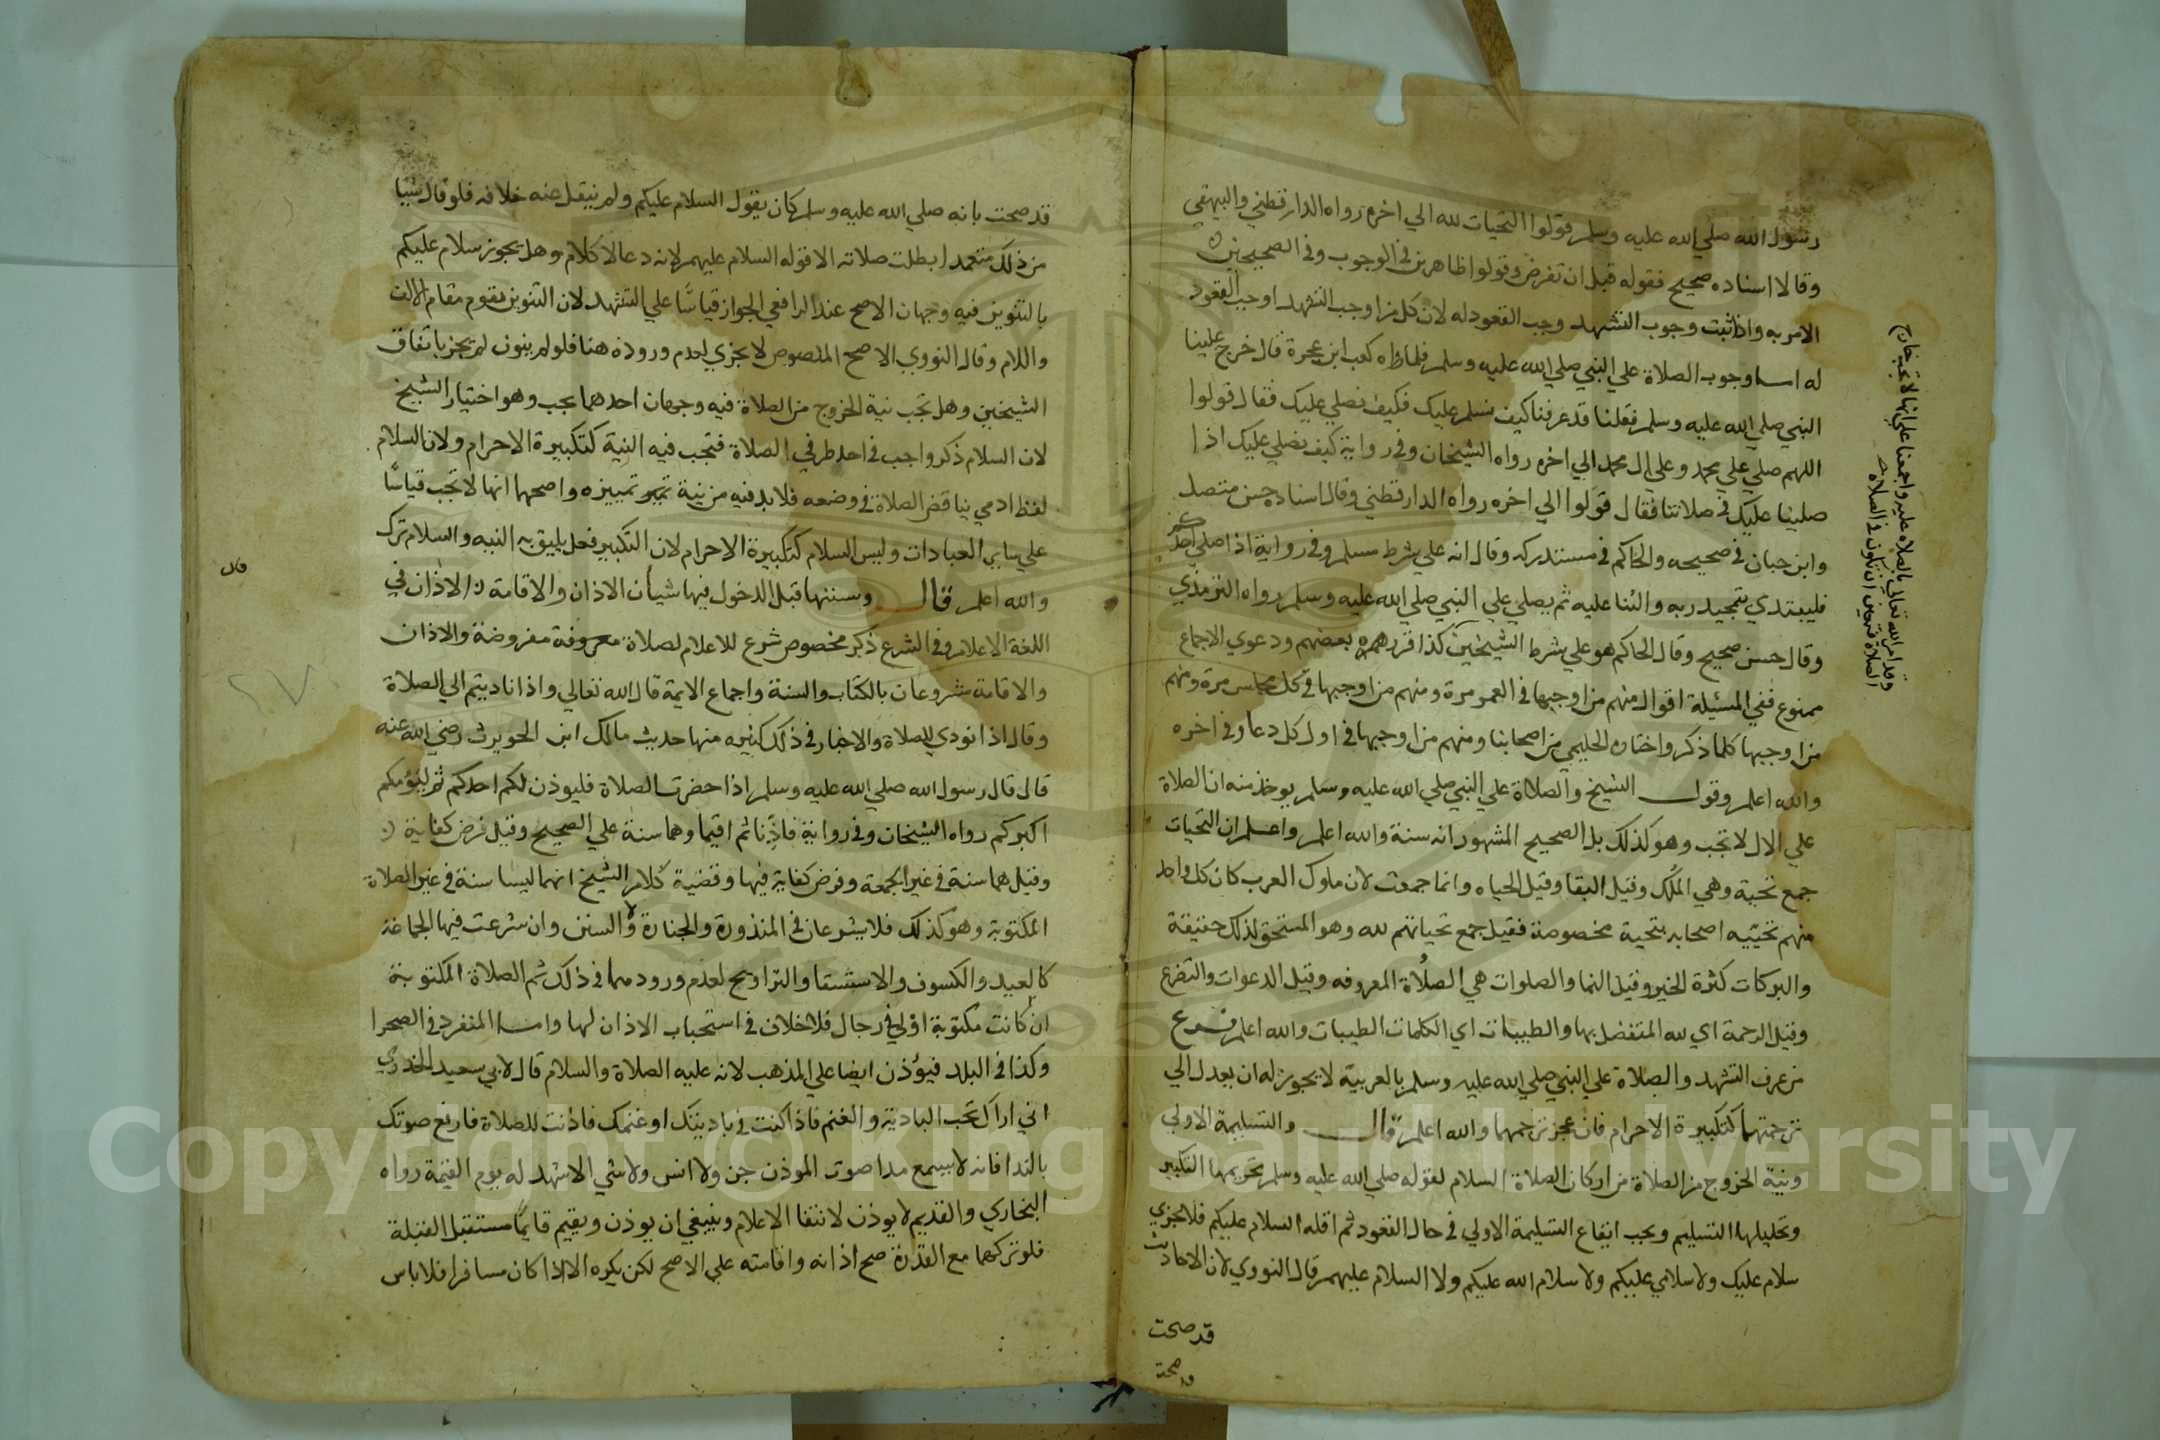 رسول الله صلي الله عليه وسلم قولوا التحيات لله الي اخره رواه الدارقطني والبيهقي
وقالا اسناده صحيح فقوله قبل ان تفرض وقولوا ظاهرين في الوجوب وفي الصحيحين
الامر به واذا ثبت وجوب التشهد وجب القعود له لان كل من اوجب التشهد اوجب القعود
له اما وجوب الصلاة علي النبي صلي الله عليه وسلم فلما رواه كعب ابن عجرة قال خرج علينا
النبي صلي الله عليه وسلم فقلنا قد عرفنا كيف نسلم عليك فكيف نصلي عليك فقال قولوا
اللهم صلي علي محمد وعلي ال محمد الي اخره رواه الشيخان وفي رواية كيف نصلي عليك اذا
صلينا عليك في صلاتنا فقال قولوا الي اخره رواه الدارقطني وقال اسناده حسن متصل
وابن حبان في صحيحه والحاكم في مستدركه وقال انه علي شرط مسلم وفي رواية اذا صلي احدكم
فليبتدي بتمجيد ربه والثنا عليه ثم يصلي علي النبي صلي الله عليه وسلم رواه الترمذي
وقال حسن صحيح وقال الحاكم هو علي شرط الشيخين كذا قرره بعضهم ودعوي الاجماع
ممنوع ففي المسئلة اقوال منهم من اوجبها في العمر مرة ومنهم من اوجبها في كل مجلس مرة ومنهم
من اوجبها كلما ذكر واختاره الحليمي من اصحابنا ومنهم من اوجبها في اول كل دعا وفي اخره
والله اعلم وقول الشيخ والصلاة علي النبي صلي الله عليه وسلم يوخذ منه ان الصلاة
علي الال لا تجب وهو كذلك بل الصحيح المشهور انه سنة والله اعلم واعلم ان التحيات
جمع تحية وهي الملك وقيل البقا وقيل الحياه وانما جمعت لان ملوك العرب كان كل واحد
منهم تحييه اصحابه بتحية مخصوصة فقيل جمع تحياتهم لله وهو المستحق لذلك حقيقة
والبركات كثرة الخير وقيل النما والصلوات هي الصلاة المعروفه وقيل الدعوات والتضرع
وقيل الرحمة اي لله المتفضل بها والطيبات اي الكلمات الطيبات والله اعلم فرع
من عرف التشهد والصلاة علي النبي صلي الله عليه وسلم بالعربية لا يجوز له ان يعدل الي
ترجمتهما كتكبيرة الاحرام فان عجز ترجمهما والله اعلم قال والتسليمة الاولي
ونية الخروج من الصلاة من اركان الصلاة السلام لقوله صلي الله عليه وسلم تحريمها التكبير
وتحليلها التسليم ويجب ايقاع التسليمة الاولي في حال القعود ثم اقله السلام عليكم فلا يجزي
سلام عليك ولا سلامي عليكم ولا سلام الله عليكم ولا السلام عليهم قال النووي لان الاحاديث
قد صحت
وقد امر الله تعالي بالصلاه عليه واجمعنا علي انها لا تجب خارج
الصلاة فتعين ان تكون في الصلاة
قد صحت بانه صلي الله عليه وسلم كان يقول السلام عليكم ولم ينقل عنه خلافه فلو قال شيا
من ذلك متعمدا بطلت صلاته الا قوله السلام عليهم لانه دعا لا كلام وهل يجوز سلام عليكم
بالتنوين فيه وجهان الاصح عند الرافعي الجواز قياسًا علي التشهد لان التنوين يقوم مقام الالف
واللام وقال النووي الاصح المنصوص لا يجزي لعدم وروده هنا فلو لم ينون لم يجز باتفاق
الشيخين وهل تجب نية الخروج من الصلاة فيه وجهان احدهما يجب وهو اختيار الشيخ
لان السلام ذكر واجب في احد طرفي الصلاة فتجب فيه النية كتكبيرة الاحرام ولان السلام
لفظ ادمي يناقض الصلاة في وضعه فلا بد فيه من نية تميزه واصحهما انها لا تجب قياسًا
علي ساير العبادات وليس السلام كتكبيرة الاحرام لان التكبير فعل يليق به النيه والسلام ترك
والله اعلم قال وسننها قبل الدخول فيها شيأن الاذان والاقامة الاذان في
اللغة الاعلام وفي الشرع ذكر مخصوص شرع للاعلام لصلاة معروفة مفروضة والاذان
والاقامة مشروعان بالكتاب والسنة واجماع الايمة قال الله تعالي واذا ناديتم الي الصلاة
وقال اذا نودي للصلاة والاخبار في ذلك كثيره منها حديث مالك ابن الحويرث رضي الله عنه
قال قال رسول الله صلي الله عليه وسلم اذا حضرت الصلاة فليوذن لكم احدكم ثم ليؤمكم
اكبركم رواه الشيخان وفي رواية فاذنا ثم اقيما وهما سنة علي الصحيح وقيل فرض كفاية
وقيل هما سنة في غير الجمعة وفرض كفاية فيها وقضية كلام الشيخ انهما ليسا سنة في غير الصلاة
المكتوبة وهو كذلك فلا يشرعان في المنذورة والجنازة ولا السنن وان شرعت فيها الجماعة
كالعيد والكسوف والاستسقا والتراويح لعدم ورودهما في ذلك ثم الصلاة المكتوبة
ان كانت مكتوبة اولي في رجال فلا خلاف في استحباب الاذان لها واما المنفرد في الصحرا
وكذا في البلد فيؤذن ايضا علي المذهب لانه عليه الصلاة والسلام قال لابي سعيد الخدري
اني اراك تحب البادية والغنم فاذا كنت في باديتك او غنمك فاذنت للصلاة فارفع صوتك
بالندا فانه لا يسمع مدا صوت الموذن جن ولا انس ولا شي الا شهد له يوم القيمة رواه
البخاري والقديم لا يوذن لانتفا الاعلام وينبغي ان يوذن ويقيم قايمًا مستقبل القبلة
فلو تركهما مع القدرة صح اذانه واقامته علي الاصح لكن يكره الا اذا كان مسافرا فلا باس
قال
٢٧
Copyright © King Saud University